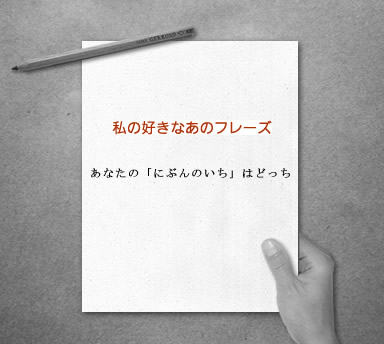 私の好きなあのフレーズ
あなたの「にぶんのいち」はどっち